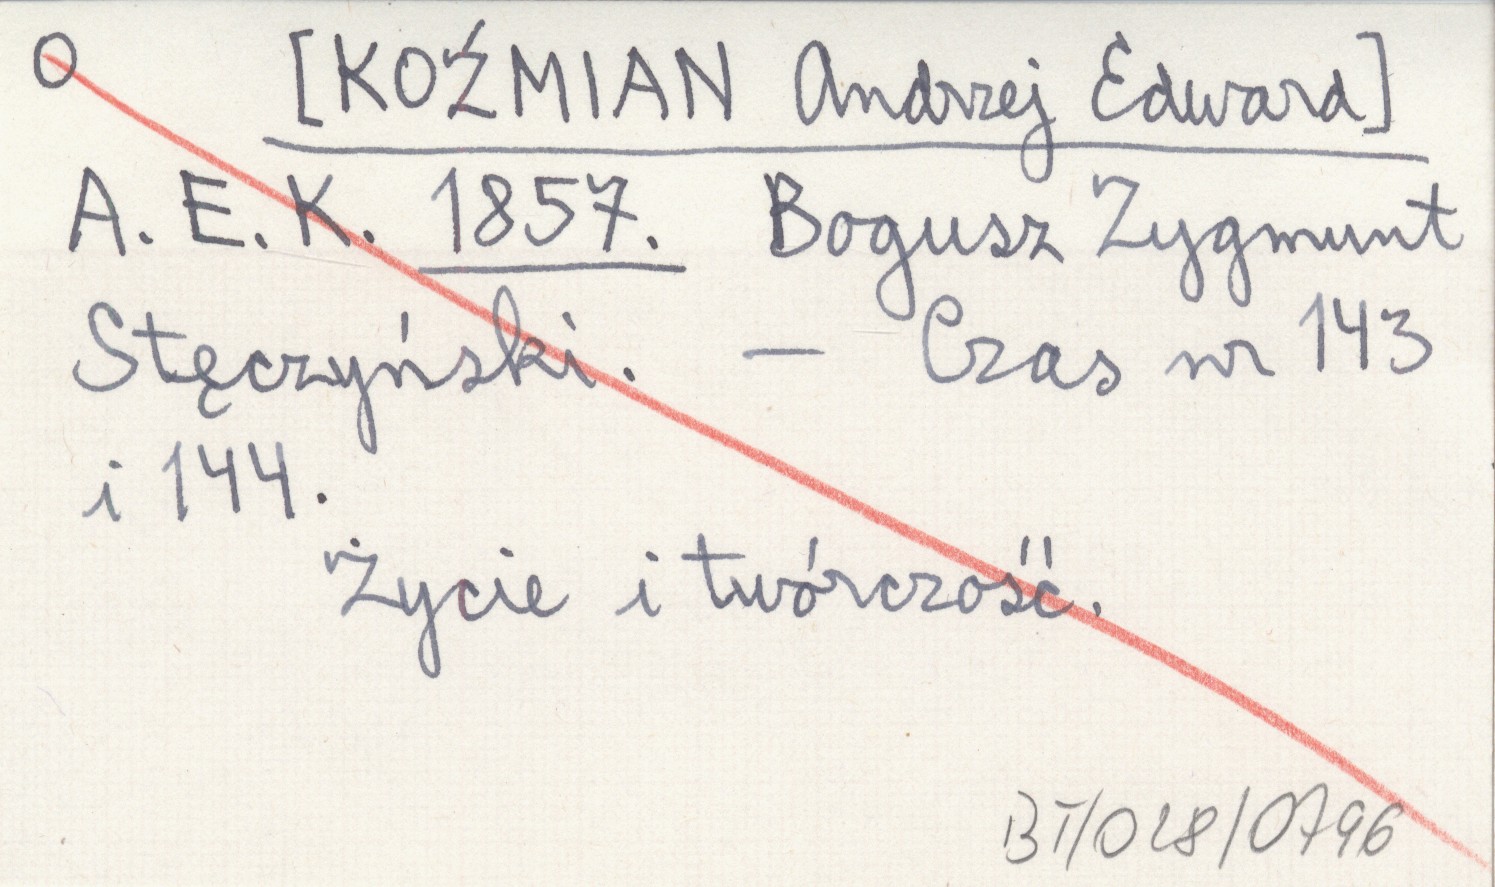 O [KOŹMIAN Andrzej Edward]
A. E. K. 1857. Bogusz Zygmunt
Stęczyński. — Czas nr 143
i 144.
Życie i twórczość.
BT/028/0796